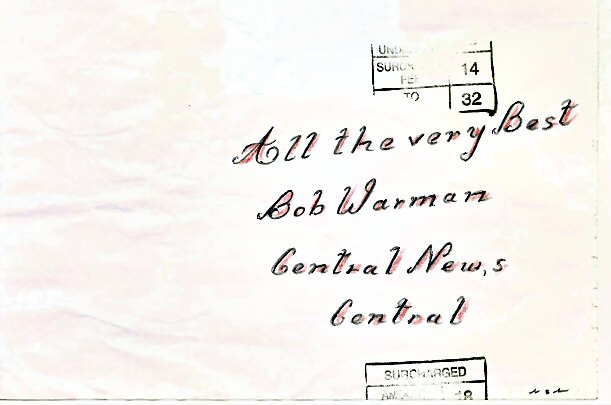 SURCH
14
TO
32
All the very Best
Bob Warman
Central News
Central
SURCHARGED
18